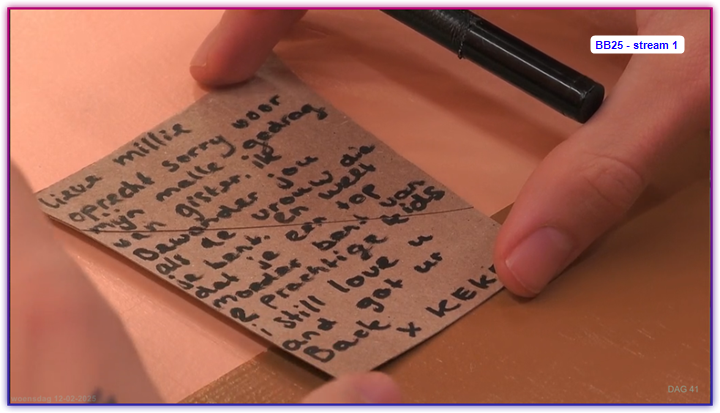 BB25 - stream 1
Lieve millie
oprecht sorry voor
mijn malle gedrag
van gister. ik
Bewonder jou
als de vrouw die
je bent. En weet
dat je een top
moeder bent van
2 prachtige kids
i still love u
and got ur
Back x KEKE
woensdag 12-02-2025
DAG 41